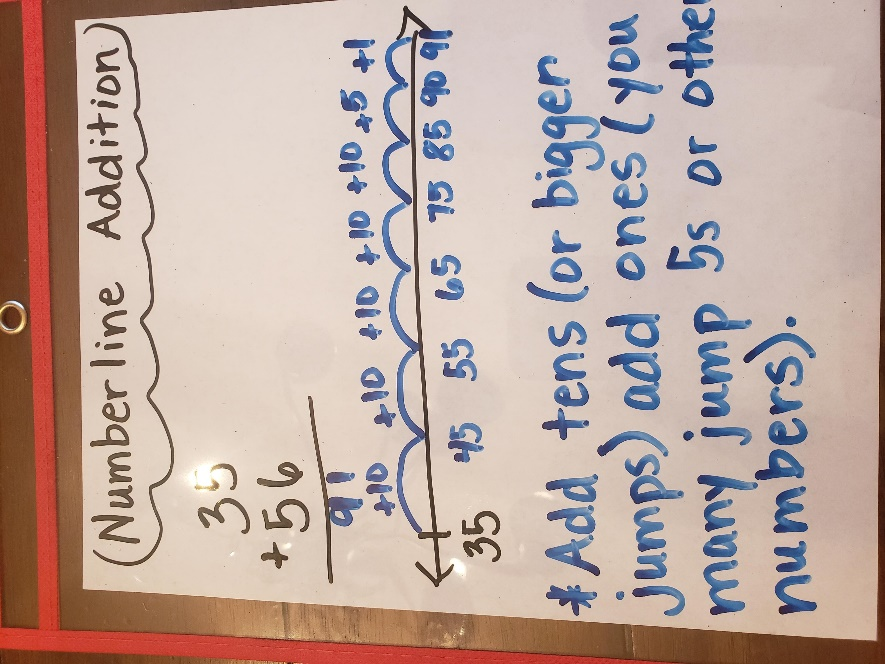 Numberline Addition
35
+56
91
+10 +10 +10 +10 +10 +5 +1
35 45 55 65 75 85 90 91
* Add tens (or bigger
jumps) add ones (you
many jump 5s or other
numbers).